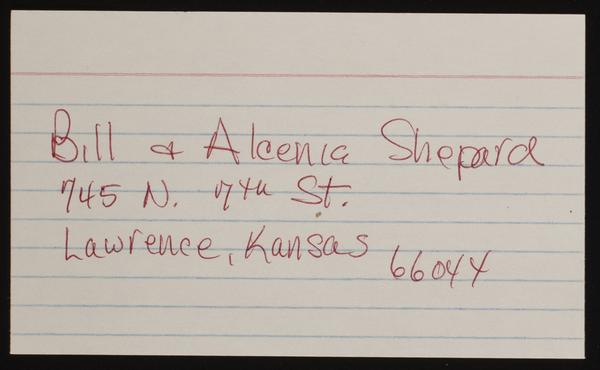 Bill & Alcenia Shepard
745 N. 7th St.
Lawrence, Kansas 66044